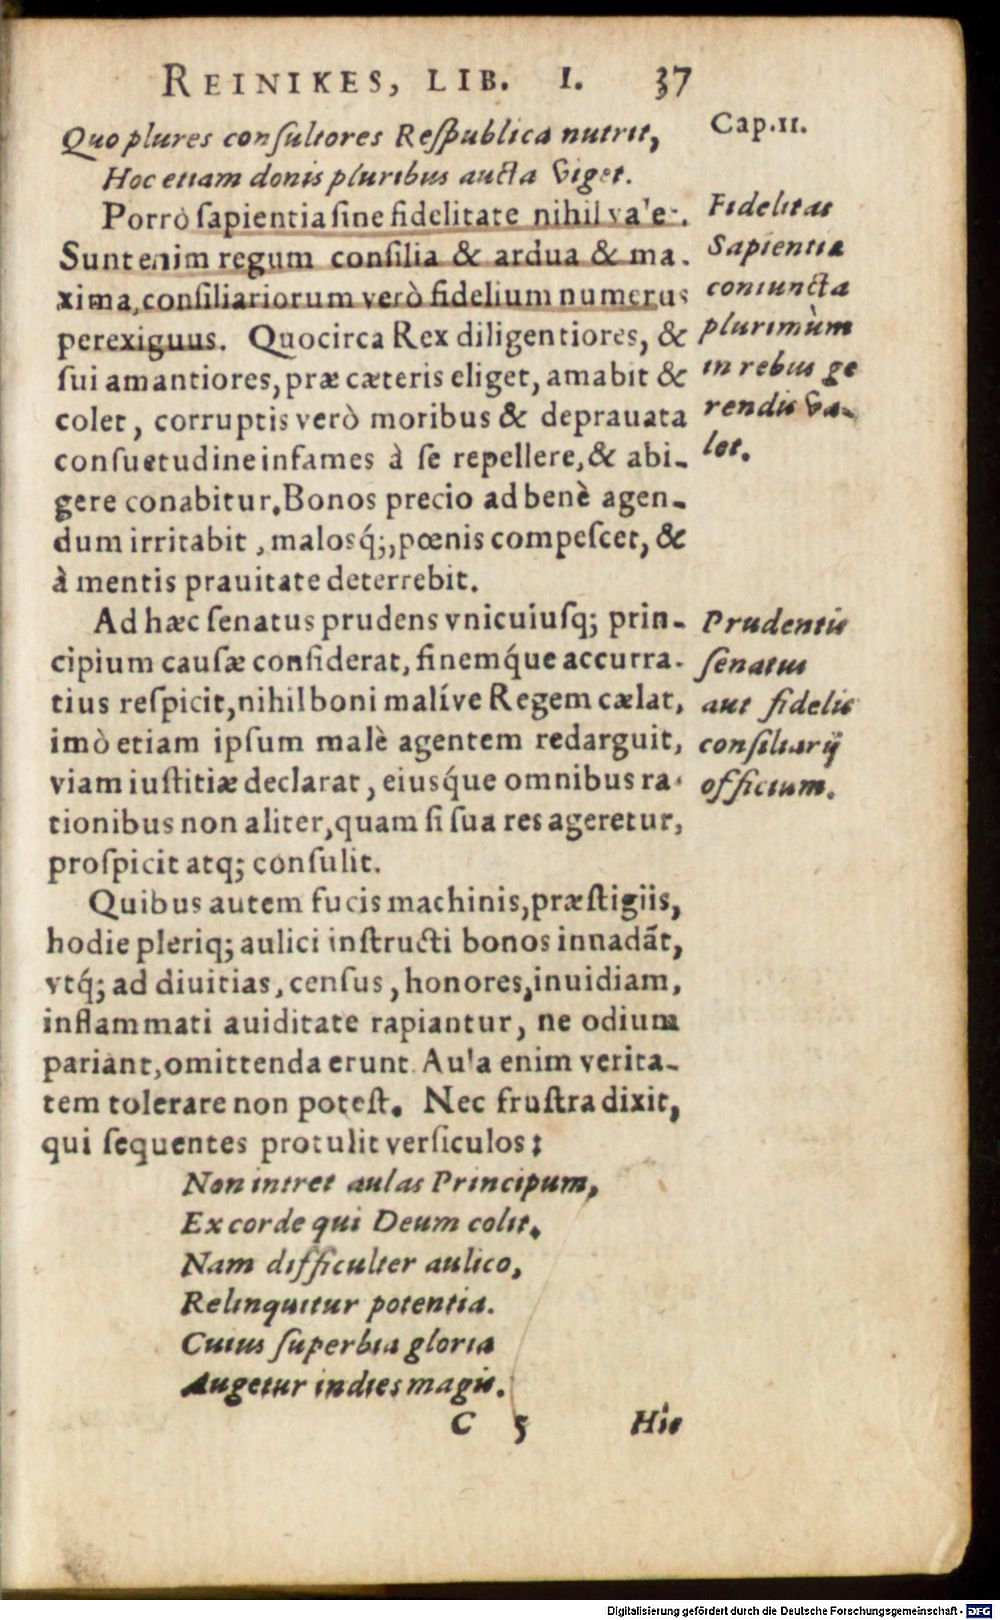 REINIKES, LIB. I. 37
Cap.11.
Quo plures conſultores Reſpublica nutrit,
Hoc etiam donis pluribus aucta viget.
Porrò ſapientia ſine fidelitate nihil va'et.
Sunt enim regum conſilia & ardua & ma-
xima, conſiliariorum verò fidelium numerus
perexiguus. Quocirca Rex diligentiores, &
ſui amantiores, præ cæteris eliget, amabit &
colet, corruptis verò moribus & deprauata
conſuetudine infames à ſe repellere, & abi-
gere conabitur. Bonos precio ad benè agen-
dum irritabit, malosq́;, pœnis compeſcet, &
à mentis prauitate deterrebit.
Fidelitas
Sapientiæ
coniuncta
plurimùm
in rebus ge
rendis va-
let.
Ad hæc ſenatus prudens vnicuiuſq; prin-
cipium cauſæ conſiderat, finemq́ue accurra-
tius reſpicit, nihil boni malíve Regem cælat,
imò etiam ipſum malè agentem redarguit,
viam iuſtitiæ declarat, eiusq́ue omnibus ra-
tionibus non aliter, quam ſi ſua res ageretur,
proſpicit atq; conſulit.
Prudentis
ſenatus
aut fidelis
conſiliarij
officium.
Quibus autem fucis machinis, præſtigiis,
hodie pleriq; aulici inſtructi bonos innadãt,
vtq́; ad diuitias, cenſus, honores, inuidiam,
inflammati auiditate rapiantur, ne odium
pariant, omittenda erunt. Au'a enim verita-
tem tolerare non poteſt. Nec fruſtra dixit,
qui ſequentes protulit verſiculos:
Non intret aulas Principum,
Ex corde qui Deum colit.
Nam difficulter aulico,
Relinquitur potentia.
Cuius ſuperbia gloria
Augetur indies magis.
C 5 Hic
Digitalisierung gefördert durch die Deutsche Forschungsgemeinschaft - DFG